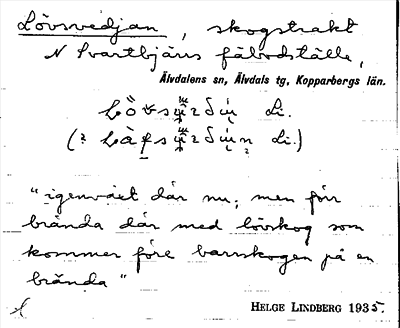 Lövsvedjan, skogstrakt
N Svartbjäris fäbodställe,
Älvdalens sn, Älvdals tg, Kopparbergs län.
Li.
(? Li.)
"igenväxt där nu; men förr
brända där med lövskog som
kommer före barrskogen på en
brända"
HELGE LINDBERG 1935.